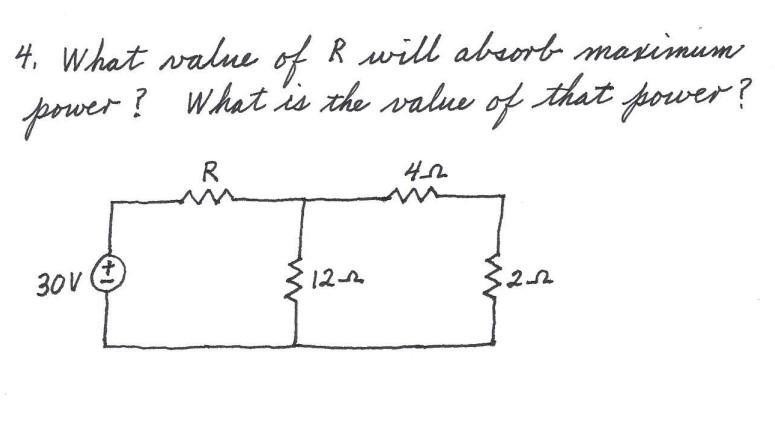 4. What value of R will absorb maximum
power? What is the value of that power?
R
4Ω
30V
+
12Ω
2Ω